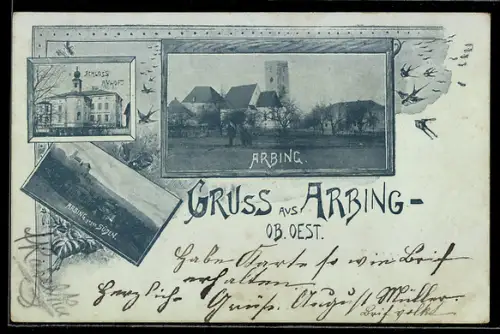 SCHLOSS
ARBING.
ARBING VOM SÜDEN.
GRUSS AUS ARBING-
OB. OEST.
Habe Karte so wie Brief
erhalten.
Herzlich. Grüße. August Müller.
Brief folgt.